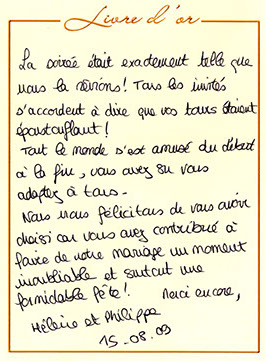 Livre d'or
La soirée était exactement telle que
nous la rêvions! Tous les invités
s'accordent à dire que vos tours étaient
époustouflant!
Tout le monde s'est amusé du début
à la fin, vous avez su vous
adaptez à tous.
Nous nous félicitons de vous avoir
choisi car vous avez contribué à
faire de notre mariage un moment
inoubliable et surtout une
formidable fête! Merci encore,
Hélène et Philippe
15-08-09